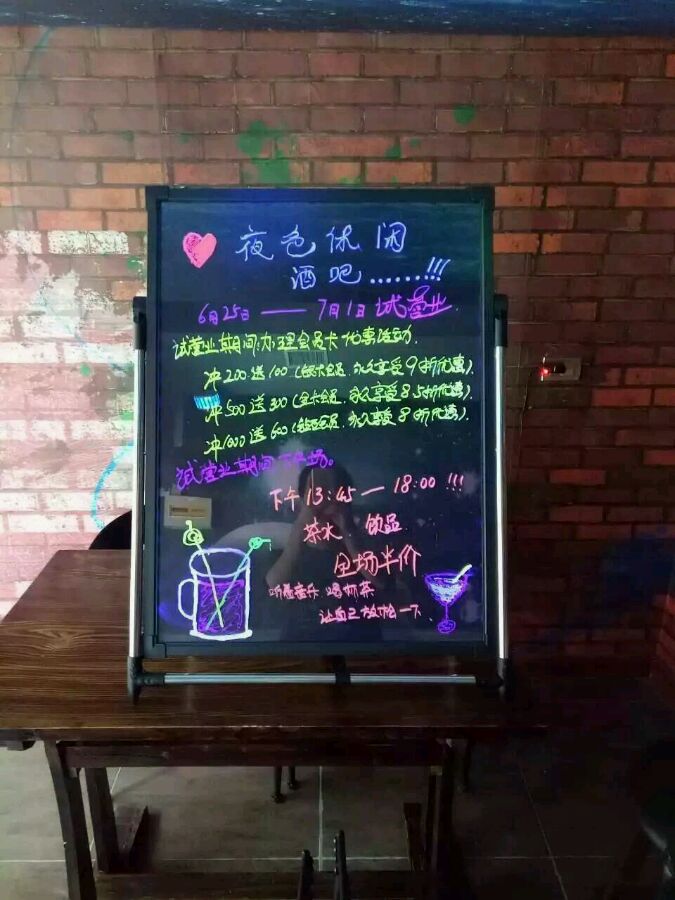 夜色休闲
酒吧......!!!
6月25日——7月1日试营业.
试营业期间:办理会员卡优惠活动.
冲200送100(银卡会员,永久享受9折优惠).
冲500送300(金卡会员,永久享受8.5折优惠).
冲1000送600(钻石会员,永久享受8折优惠).
试营业期间下午场。
下午13:45—18:00!!!
茶水 饮品
全场半价
听着音乐 喝杯茶
让自己放松一下.